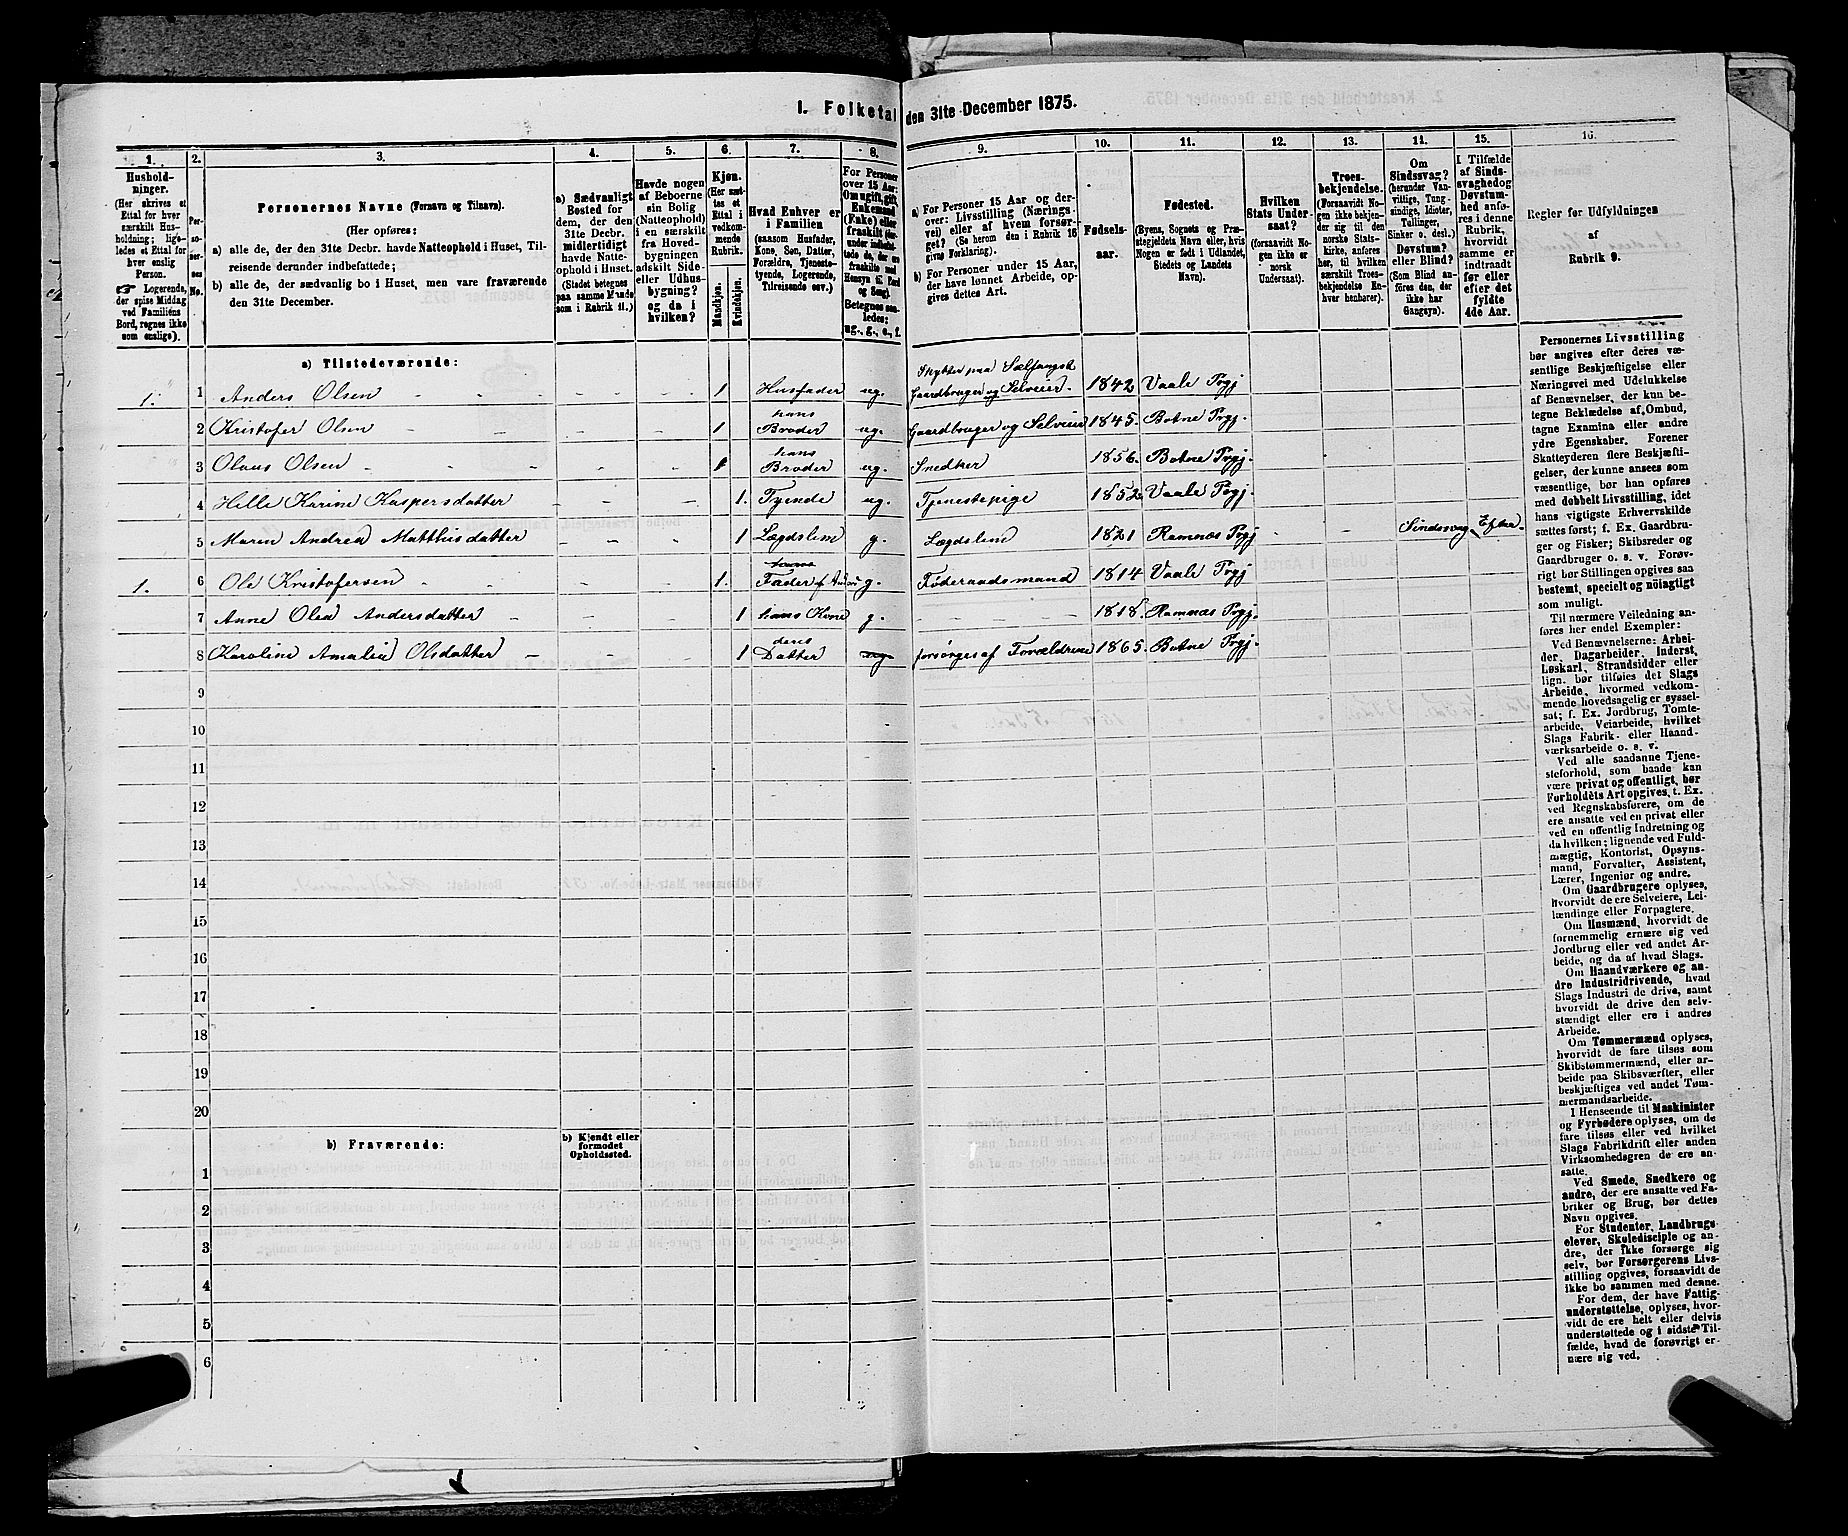 I. Folketal den 31te December 1875.
1.
Husholdninger.
(Her skrives et
Ettal for hver
særskilt Husholdning;
ligeledes et Ettal for
hver enslig
Person.
☞ Logerende,
der spise Middag
ved Familiens
Bord, regnes ikke
som enslige).
2.
Personernes No.
3.
Personernes Navne (Fornavn og Tilnavn).
(Her opføres:
a) alle de, der den 31te Decbr. havde Natteophold i Huset, Tilreisende derunder indbefattede;
b) alle de, der sædvanlig bo i Huset, men vare fraværende
den 31te December.
4.
a) Sædvanligt
Bosted for
dem, der den
31te Decbr.
midlertidigt
havde Natteophold i Huset.
(Stedet betegnes
paa samme Maade
som i Rubrik 11.)
5.
Havde nogen
af Beboerne
sin Bolig
(Natteophold)
i en særskilt
fra Hovedbygningen
adskilt Side-
eller Udhusbygning?
og da i
hvilken?
6.
Kjøn.
(Her sættes et
Ettal i
vedkommende
Rubrik.
Mandkjøn.
Kvindekjøn.
7.
Hvad Enhver er
i Familien
(saasom Husfader,
Kone, Søn, Datter,
Forældre, Tjenestetyende, Logerende,
Tilreisende osv.)
8.
For Personer
over 15 Aar:
Om ugift, gift,
Enkemand
(Enke) eller
fraskilt
Betegnes saaledes:
ug., g., e., f.
9.
a) For Personer 15 Aar og derover: Livsstilling (Næringsvei) eller af hvem forsørget? (Se herom den i Rubrik 16
givne Forklaring).
b) For Personer under 15 Aar,
der have lønnet Arbeide, opgives dettes Art.
10.
Fødselsaar.
11.
Fødested.
(Byens, Sognets og Præstegjeldets Navn eller, hvis
Nogen er født i Udlandet,
Stedets og Landets
Navn).
12.
Hvilken
Stats Undersaat?
(forsaavidt Nogen ikke er
norsk
Undersaat).
13.
Troesbekjendelse.
(Forsaavidt Nogen ikke bekjender sig til den
norske Statskirke, anføres
her, til hvilken
særskilt Troesbekjendelse Enhver henhører).
14.
Om
Sindssvag?
(herunder Vanvittige, Tungsindige, Idioter,
Tullinger,
Sinker o. desl.)
Døvstum?
eller Blind?
(Som Blind anføres den, der
ikke har
Gangsyn).
15.
I Tilfælde
af Sindssvaghed og
Døvstumhed anføres i denne
Rubrik,
hvorvidt
samme er
indtraadt
før eller
efter det
fyldte
4de Aar.
16.
Regler før Udfyldningen
af
Rubrik 9.
a) Tilstedeværende:
1. 1 Anders Olsen 1 Husfader ug. Skytter paa Sælfangst Gaardbruger og Selveier. 1842 Vaale Prgj
2 Kristofer Olsen 1 hans Broder ug. Gaardbruger og Selveier 1845. Botne Prgj.
3 Olaus Olsen 1 hans Broder ug. Snedker 1856. Botne Prgj.
4 Helle Karine Kaspersdatter 1. Tyende ug. Tjenestepige 1852 Vaale Prgj.
5 Maren Andrea Matthisdatter 1 Lægdslem g. Lægdslem 1821 Ramnæs Prgj Sindssvag Efter.
1. 6 Ole Kristofersen 1. Fader af g. Føderaadsmand 1814 Vaale Prgj
7 Anne Olea Andersdatter 1 hans Kone g. 1818. Ramnæs Prgj.
8 Karoline Amalie Olsdatter 1 deres Datter ug forsørges af Forældrene 1865. Botne Prgj.
9
10
11
12
13
14
15
16
17
18
19
20
b) Fraværende:
b) Kjendt eller
formodet
Opholdssted.
1
2
3
4
5
6
Personernes Livsstilling
bør angives efter deres væsentlige Beskjæftigelse eller
Næringsvei med Udelukkelse
af Benævnelser, der kun betegne Beklædelse af Ombud,
tagne Examina eller andre
ydre Egenskaber. Forener
Skatteyderen flere Beskjæftigelser, der kunne ansees som
væsentlige, bør han opføres
med dobbelt Livsstilling, idet
hans vigtigste Erhvervskilde
sættes først; f. Ex. Gaardbruger og Fisker; Skibsreder og
Gaardbruger o. s. v. Forøvrigt bør Stillingen opgives saa
bestemt, specielt og nöiagtigt
som muligt.
Til nærmere Veiledning anføres her endel Exempler:
Ved Benævnelserne: Arbeider, Dagarbeider, Inderst,
Løskarl, Strandsidder eller
lign. bør tilføies det Slags
Arbeide, hvormed vedkommende hovedsagelig er sysselsat; f. Ex. Jordbrug, Tomtearbeide, Veiarbeide, hvilket
Slags Fabrik- eller Haandværksarbeide o. s. v.
Ved alle saadanne Tjenesteforhold, som baade kan
være privat og offentligt, bør
Forholdets Art opgives, t. Ex.
ved Regnskabsførere, om de
ere ansatte ved en privat eller
ved en offentlig Indretning og
da hvilken; lignende ved Fuldmægtig, Kontorist, Opsynsmand, Forvalter, Assistent,
Lærer, Ingeniør og andre.
Om Gaardbrugere oplyses,
hvorvidt de ere Selveiere, Leilændinge eller Forpagtere.
Om Husmænd, hvorvidt de
fornemmelig ernære sig ved
Jordbrug eller ved andet Arbeide, og da af hvad Slags.
Om Haandværkere og andre Industridrivende, hvad
Slags Industri de drive, samt
hvorvidt de drive den selvstændigt eller ere i andres
Arbeide.
Om Tømmermænd oplyses,
hvorvidt de fare tilsøs som
Skibstømmermænd, eller arbeide paa Skibsværfter, eller
beskjæftiges ved andet Tømmermandsarbeide.
I Henseende til Maskinister
og Fyrbødere oplyses, om de
fare tilsøs eller ved hvilket
Slags Fabrikdrift eller anden
Virksomhedsgren de ere ansatte.
Ved Smede, Snedkere og
andre, der ere ansatte ved Fabriker og Brug, bør dettes
Navn opgives.
For Studenter, Landbrugselever, Skoledisciple og andre, der ikke forsørge sig
selv, bør Forsørgerens Livsstilling opgives, forsaavidt de
ikke bo sammen med denne.
For dem, der have Fattigunderstøttelse, oplyses, hvorvidt de ere helt eller delvis
understøttede og i sidste Tilfælde, hvad de forøvrigt ernære sig ved.